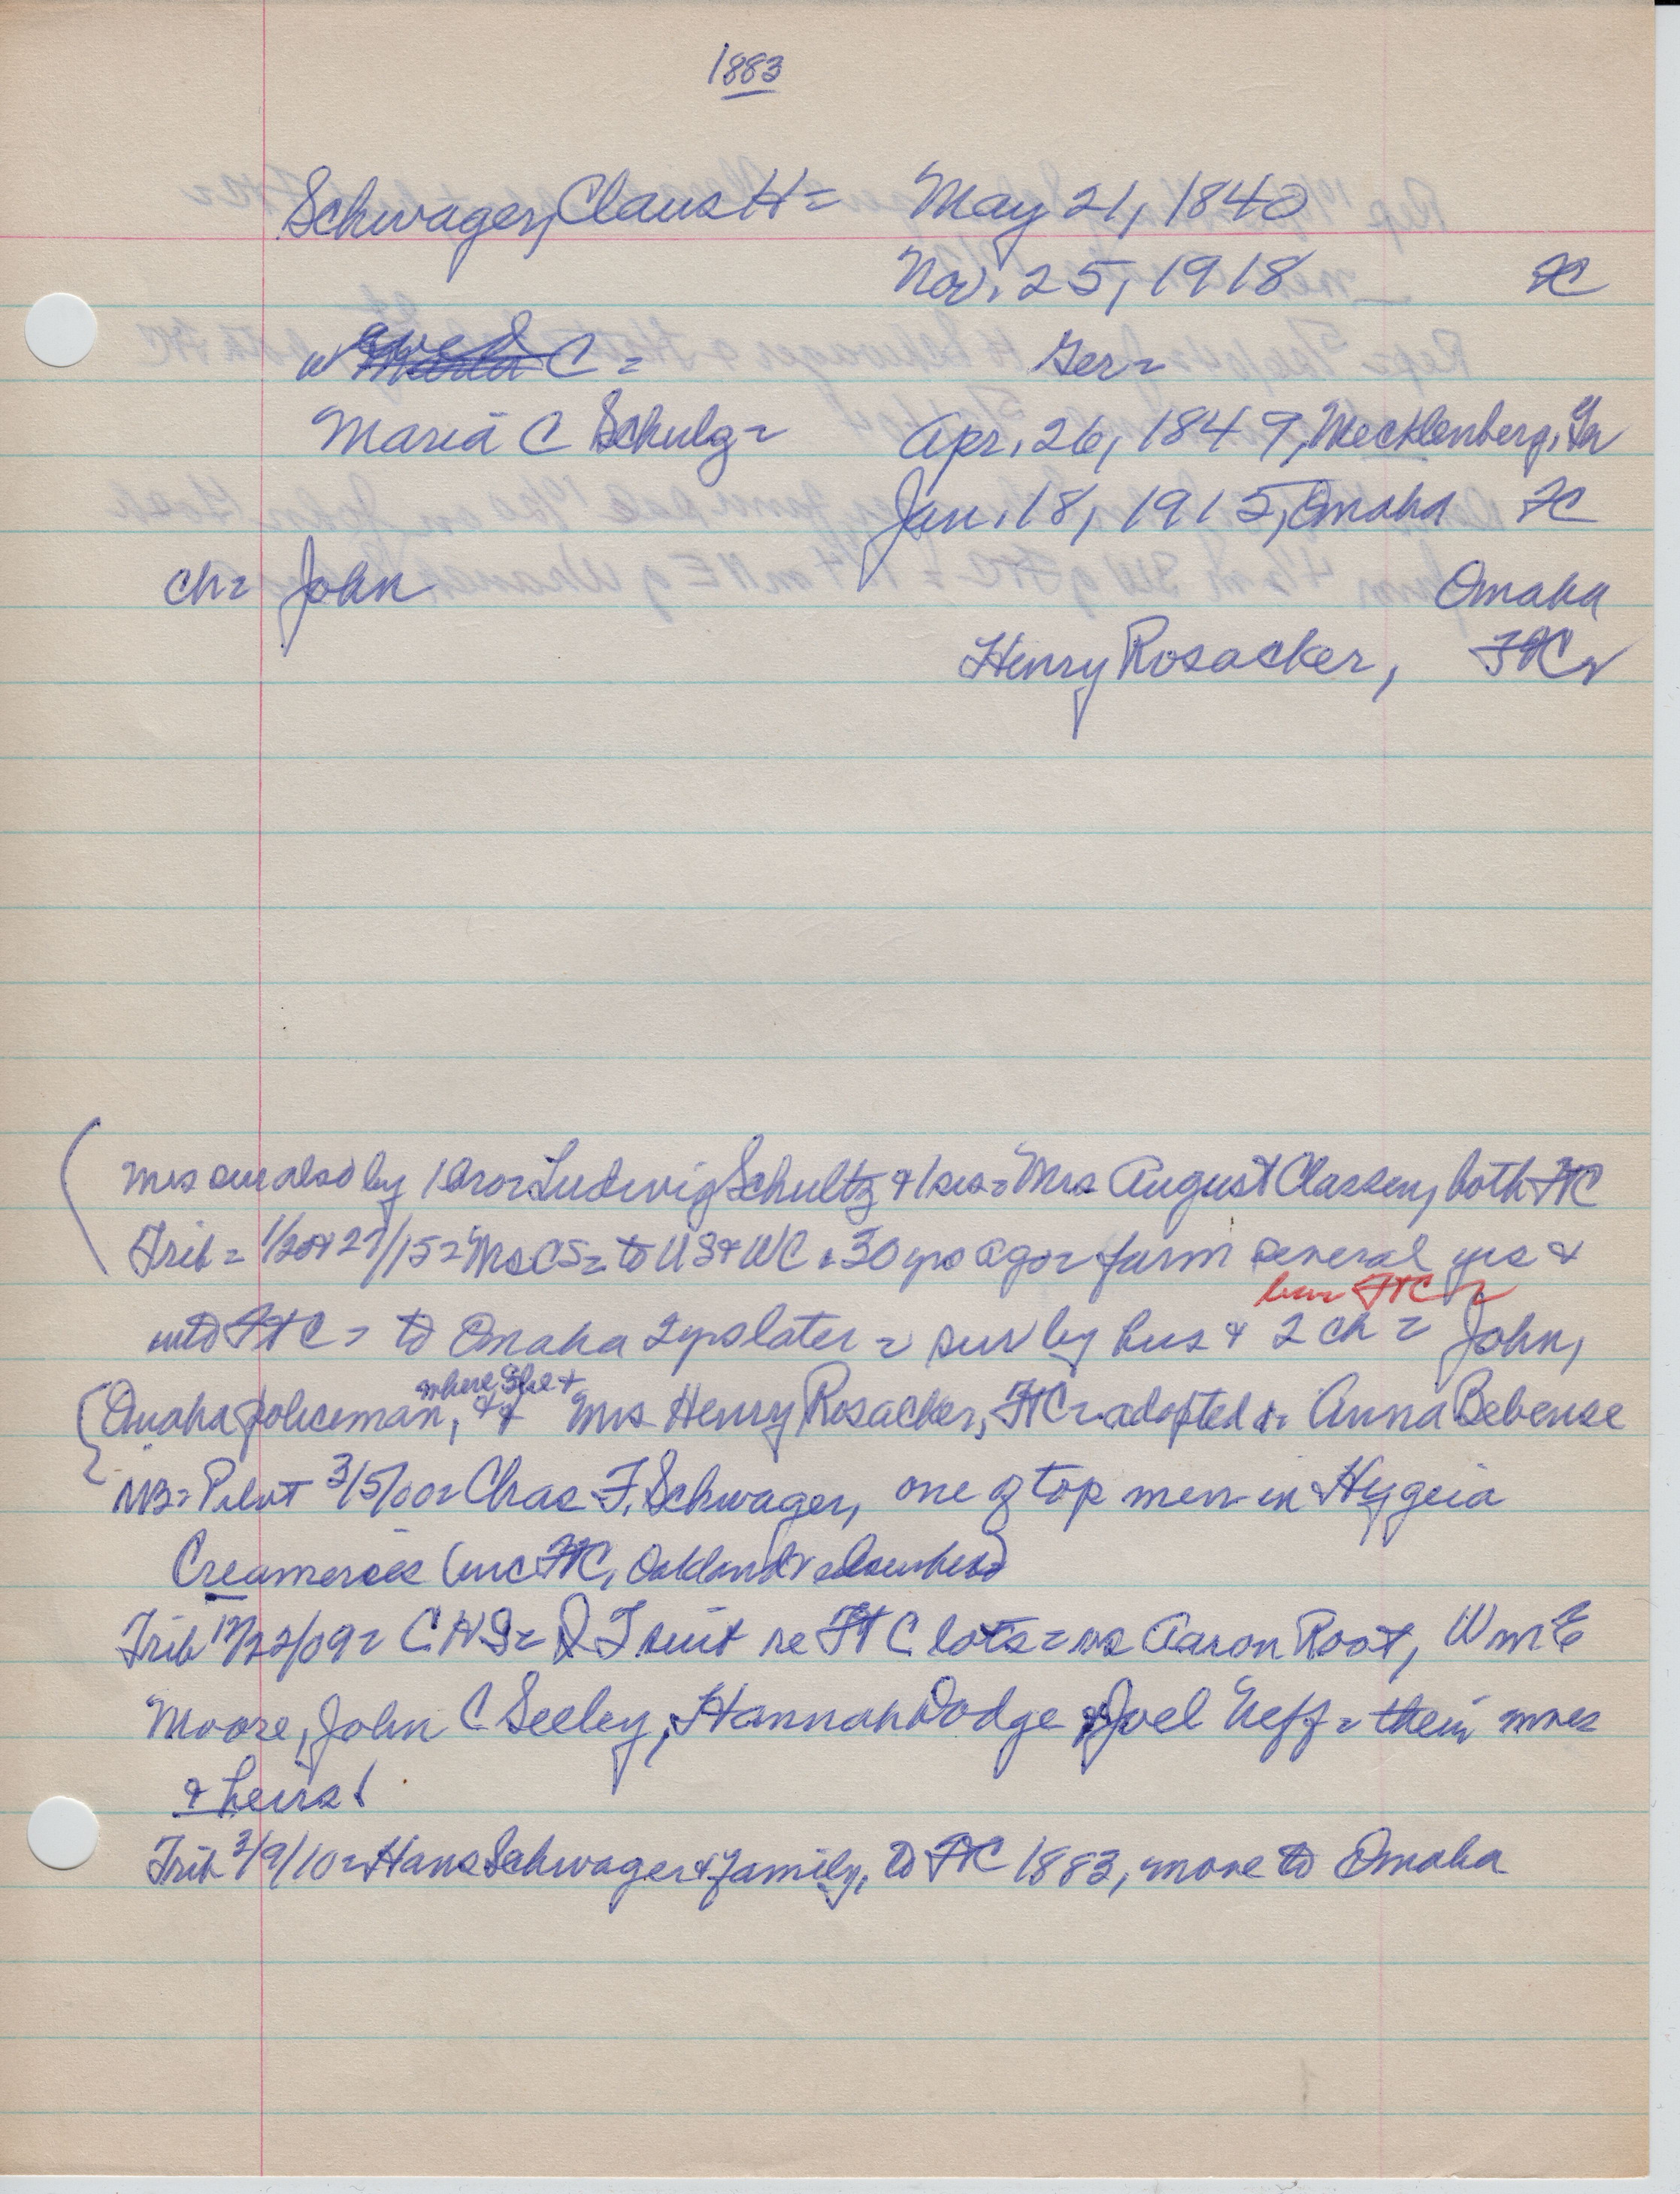 1883
Schwager, Claus H = May 21, 1840
Nov. 25, 1918 FC
w C = Ger =
Maria C Schulz = Apr. 26, 1847, Mecklenberg, Gr
Jan. 18, 1915, Omaha FC
ch = John Omaha
Henry Rosacker, FtC
Mrs sur also by 1 bro = Ludwig Schultz & 1 sis = Mrs August Classen, both FtC
Trib = 1/20 & 27/15 = Mrs CS = to US & WC . 30 yrs ago = farm several yrs &
bur FtC =
into FtC = to Omaha 2 yrs later = sur by hus & 2 ch = John,
where she +
Omaha policeman, & Mrs Henry Rosacker, FtC = adopted dr Anna Bebense
NB = Pilot 3/5/00 = Chas F. Schwager, one of top men in Hygeia
Creameries (inc FtC, Oakland & elsewhere)
Trib 12/22/09 = CHS = Q T suit re FtC lots = vs Aaron Root, Wm E
Moore, John C Seeley, Hannah Dodge & Joel Neff = their wives
& heirs!
Trib 3/9/10 = Hans Schwager & family, to FtC 1883, move to Omaha